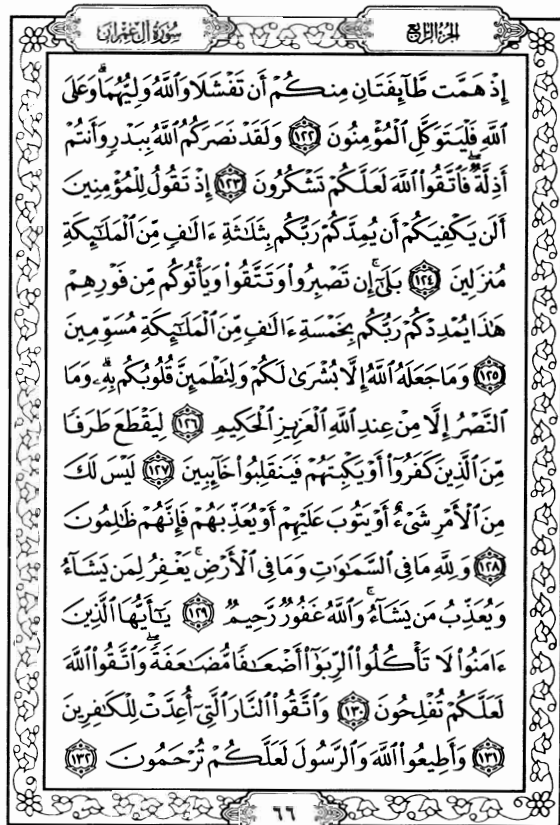 سُورَةُ آلِ عِمْرَانَ
الجُزءُ الرَّابِعُ
إِذْ هَمَّت طَّآئِفَتَانِ مِنكُمْ أَن تَفْشَلَا وَٱللَّهُ وَلِيُّهُمَاۗ وَعَلَى
ٱللَّهِ فَلْيَتَوَكَّلِ ٱلْمُؤْمِنُونَ ١٢٢ وَلَقَدْ نَصَرَكُمُ ٱللَّهُ بِبَدْرٍ وَأَنتُمْ
أَذِلَّةٌۖ فَٱتَّقُوا۟ ٱللَّهَ لَعَلَّكُمْ تَشْكُرُونَ ١٢٣ إِذْ تَقُولُ لِلْمُؤْمِنِينَ
أَلَن يَكْفِيَكُمْ أَن يُمِدَّكُمْ رَبُّكُم بِثَلَـٰثَةِ ءَالَـٰفٍ مِّنَ ٱلْمَلَـٰٓئِكَةِ
مُنزَلِينَ ١٢٤ بَلَىٰٓۚ إِن تَصْبِرُوا۟ وَتَتَّقُوا۟ وَيَأْتُوكُم مِّن فَوْرِهِمْ
هَـٰذَا يُمْدِدْكُمْ رَبُّكُم بِخَمْسَةِ ءَالَـٰفٍ مِّنَ ٱلْمَلَـٰٓئِكَةِ مُسَوِّمِينَ
١٢٥ وَمَا جَعَلَهُ ٱللَّهُ إِلَّا بُشْرَىٰ لَكُمْ وَلِتَطْمَئِنَّ قُلُوبُكُم بِهِۦۗ وَمَا
ٱلنَّصْرُ إِلَّا مِنْ عِندِ ٱللَّهِ ٱلْعَزِيزِ ٱلْحَكِيمِ ١٢٦ لِيَقْطَعَ طَرَفًا
مِّنَ ٱلَّذِينَ كَفَرُوٓا۟ أَوْ يَكْبِتَهُمْ فَيَنقَلِبُوا۟ خَآئِبِينَ ١٢٧ لَيْسَ لَكَ
مِنَ ٱلْأَمْرِ شَىْءٌ أَوْ يَتُوبَ عَلَيْهِمْ أَوْ يُعَذِّبَهُمْ فَإِنَّهُمْ ظَـٰلِمُونَ
١٢٨ وَلِلَّهِ مَا فِى ٱلسَّمَـٰوَٰتِ وَمَا فِى ٱلْأَرْضِۚ يَغْفِرُ لِمَن يَشَآءُ
وَيُعَذِّبُ مَن يَشَآءُۚ وَٱللَّهُ غَفُورٌ رَّحِيمٌ ١٢٩ يَـٰٓأَيُّهَا ٱلَّذِينَ
ءَامَنُوا۟ لَا تَأْكُلُوا۟ ٱلرِّبَوٰٓا۟ أَضْعَـٰفًا مُّضَـٰعَفَةًۖ وَٱتَّقُوا۟ ٱللَّهَ
لَعَلَّكُمْ تُفْلِحُونَ ١٣٠ وَٱتَّقُوا۟ ٱلنَّارَ ٱلَّتِىٓ أُعِدَّتْ لِلْكَـٰفِرِينَ
١٣١ وَأَطِيعُوا۟ ٱللَّهَ وَٱلرَّسُولَ لَعَلَّكُمْ تُرْحَمُونَ ١٣٢
٦٦